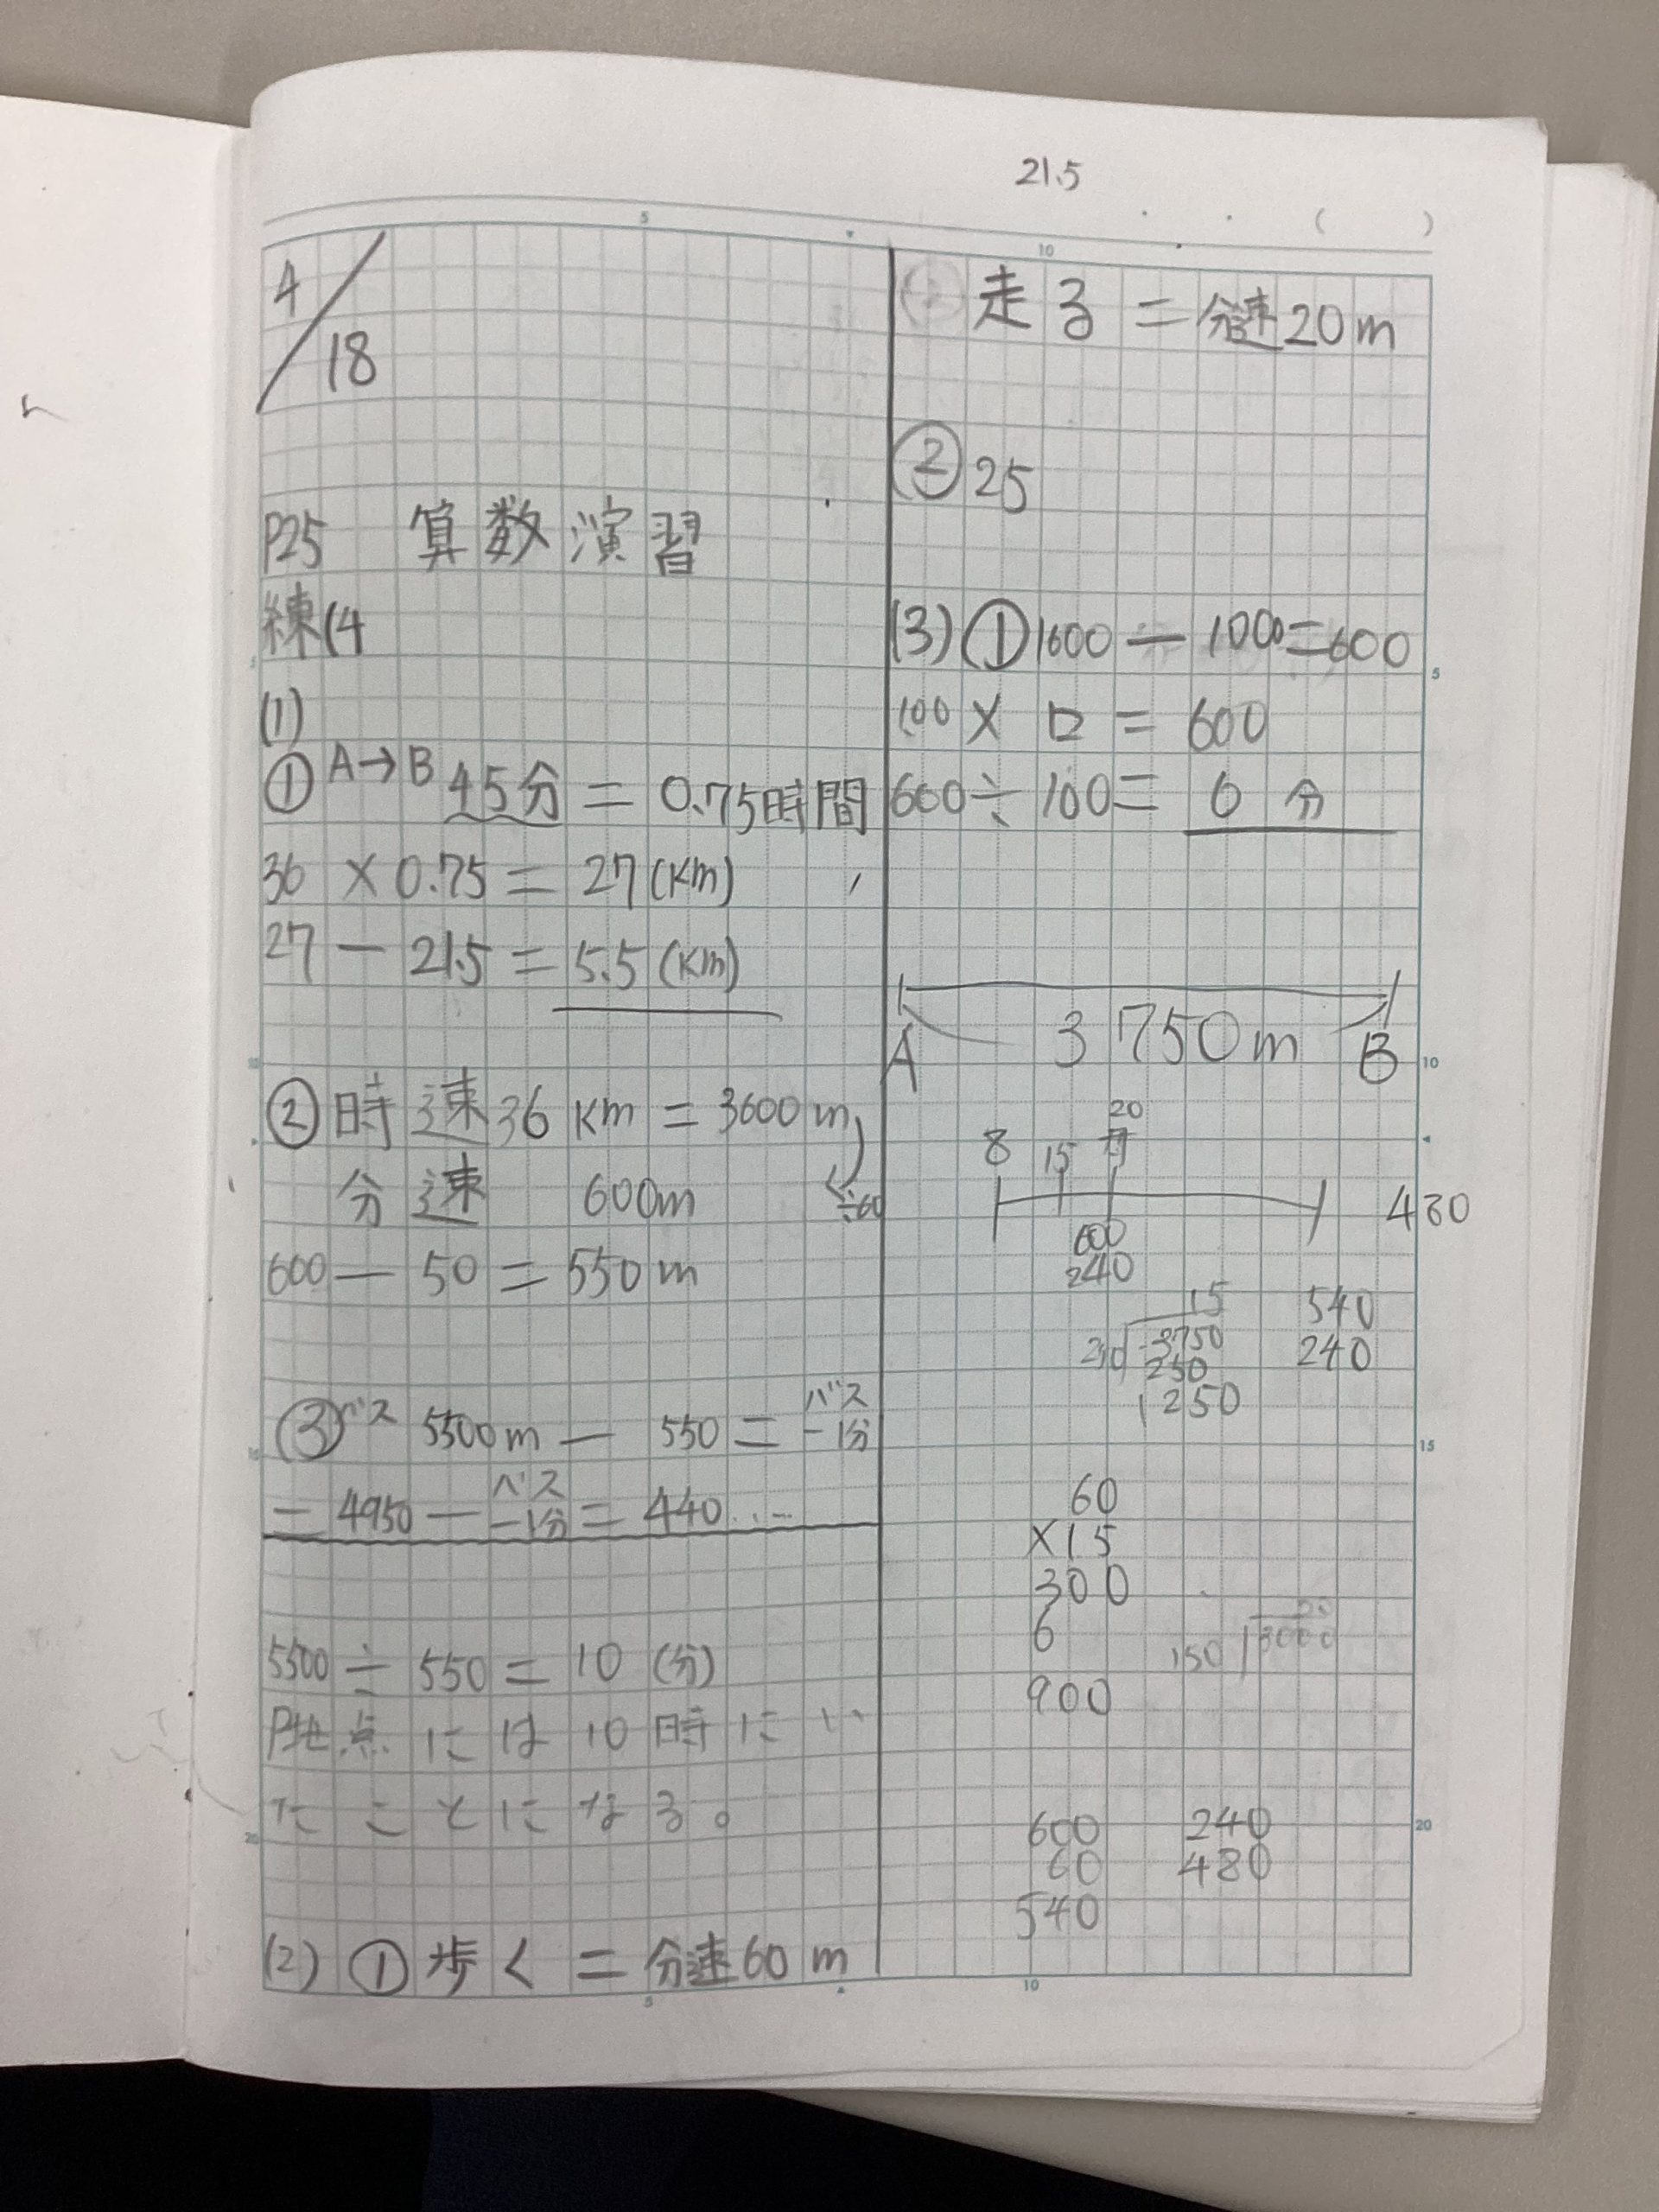 21.5
4/18
P25 算数演習
練(4
(1)
① A→B 45分 = 0.75時間
36 × 0.75 = 27 (Km)
27 − 21.5 = 5.5 (Km)
② 時速36 Km = 3600 m
÷60
分速 600m
600 − 50 = 550 m
③ バス 5500m − 550 = バス一分
= 4950 − バス一分 = 440…
5500 ÷ 550 = 10 (分)
P地点には10時にい
たことになる。
(2) ① 歩く = 分速60 m
走る = 分速20m
② 25
(3) ① 1600 − 1000 = 600
100 × □ = 600
600 ÷ 100 = 6 分
A 3750m B
20
8 15
480
600
240
15
3750
250
1250
540
240
60
×15
300
6
900
150 3000
600
60
540
240
480